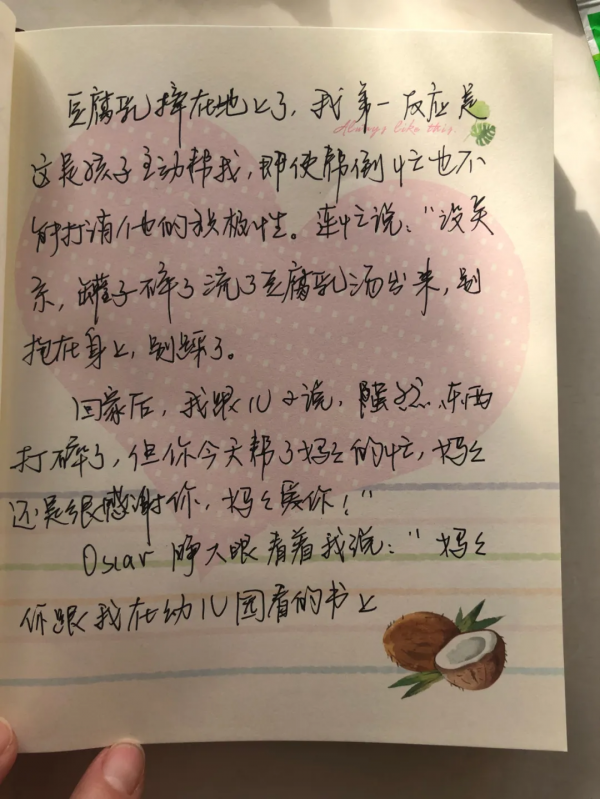 豆腐乳摔在地上了，我第一反应是
Always like this.
这是孩子主动帮我，即使帮倒忙也不
能打消他的积极性。连忙说："没关
系，罐子碎了流了豆腐乳汤出来，别
抱在身上，别踩了。
回家后，我跟儿子说，虽然东西
打碎了，但你今天帮了妈妈的忙，妈妈
还是很感谢你，妈妈爱你！"
Oscar 睁大眼看着我说："妈妈
你跟我在幼儿园看的书上